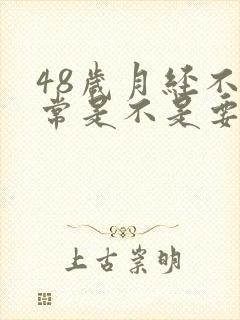 48岁月经不
常是不是要
上古崇明